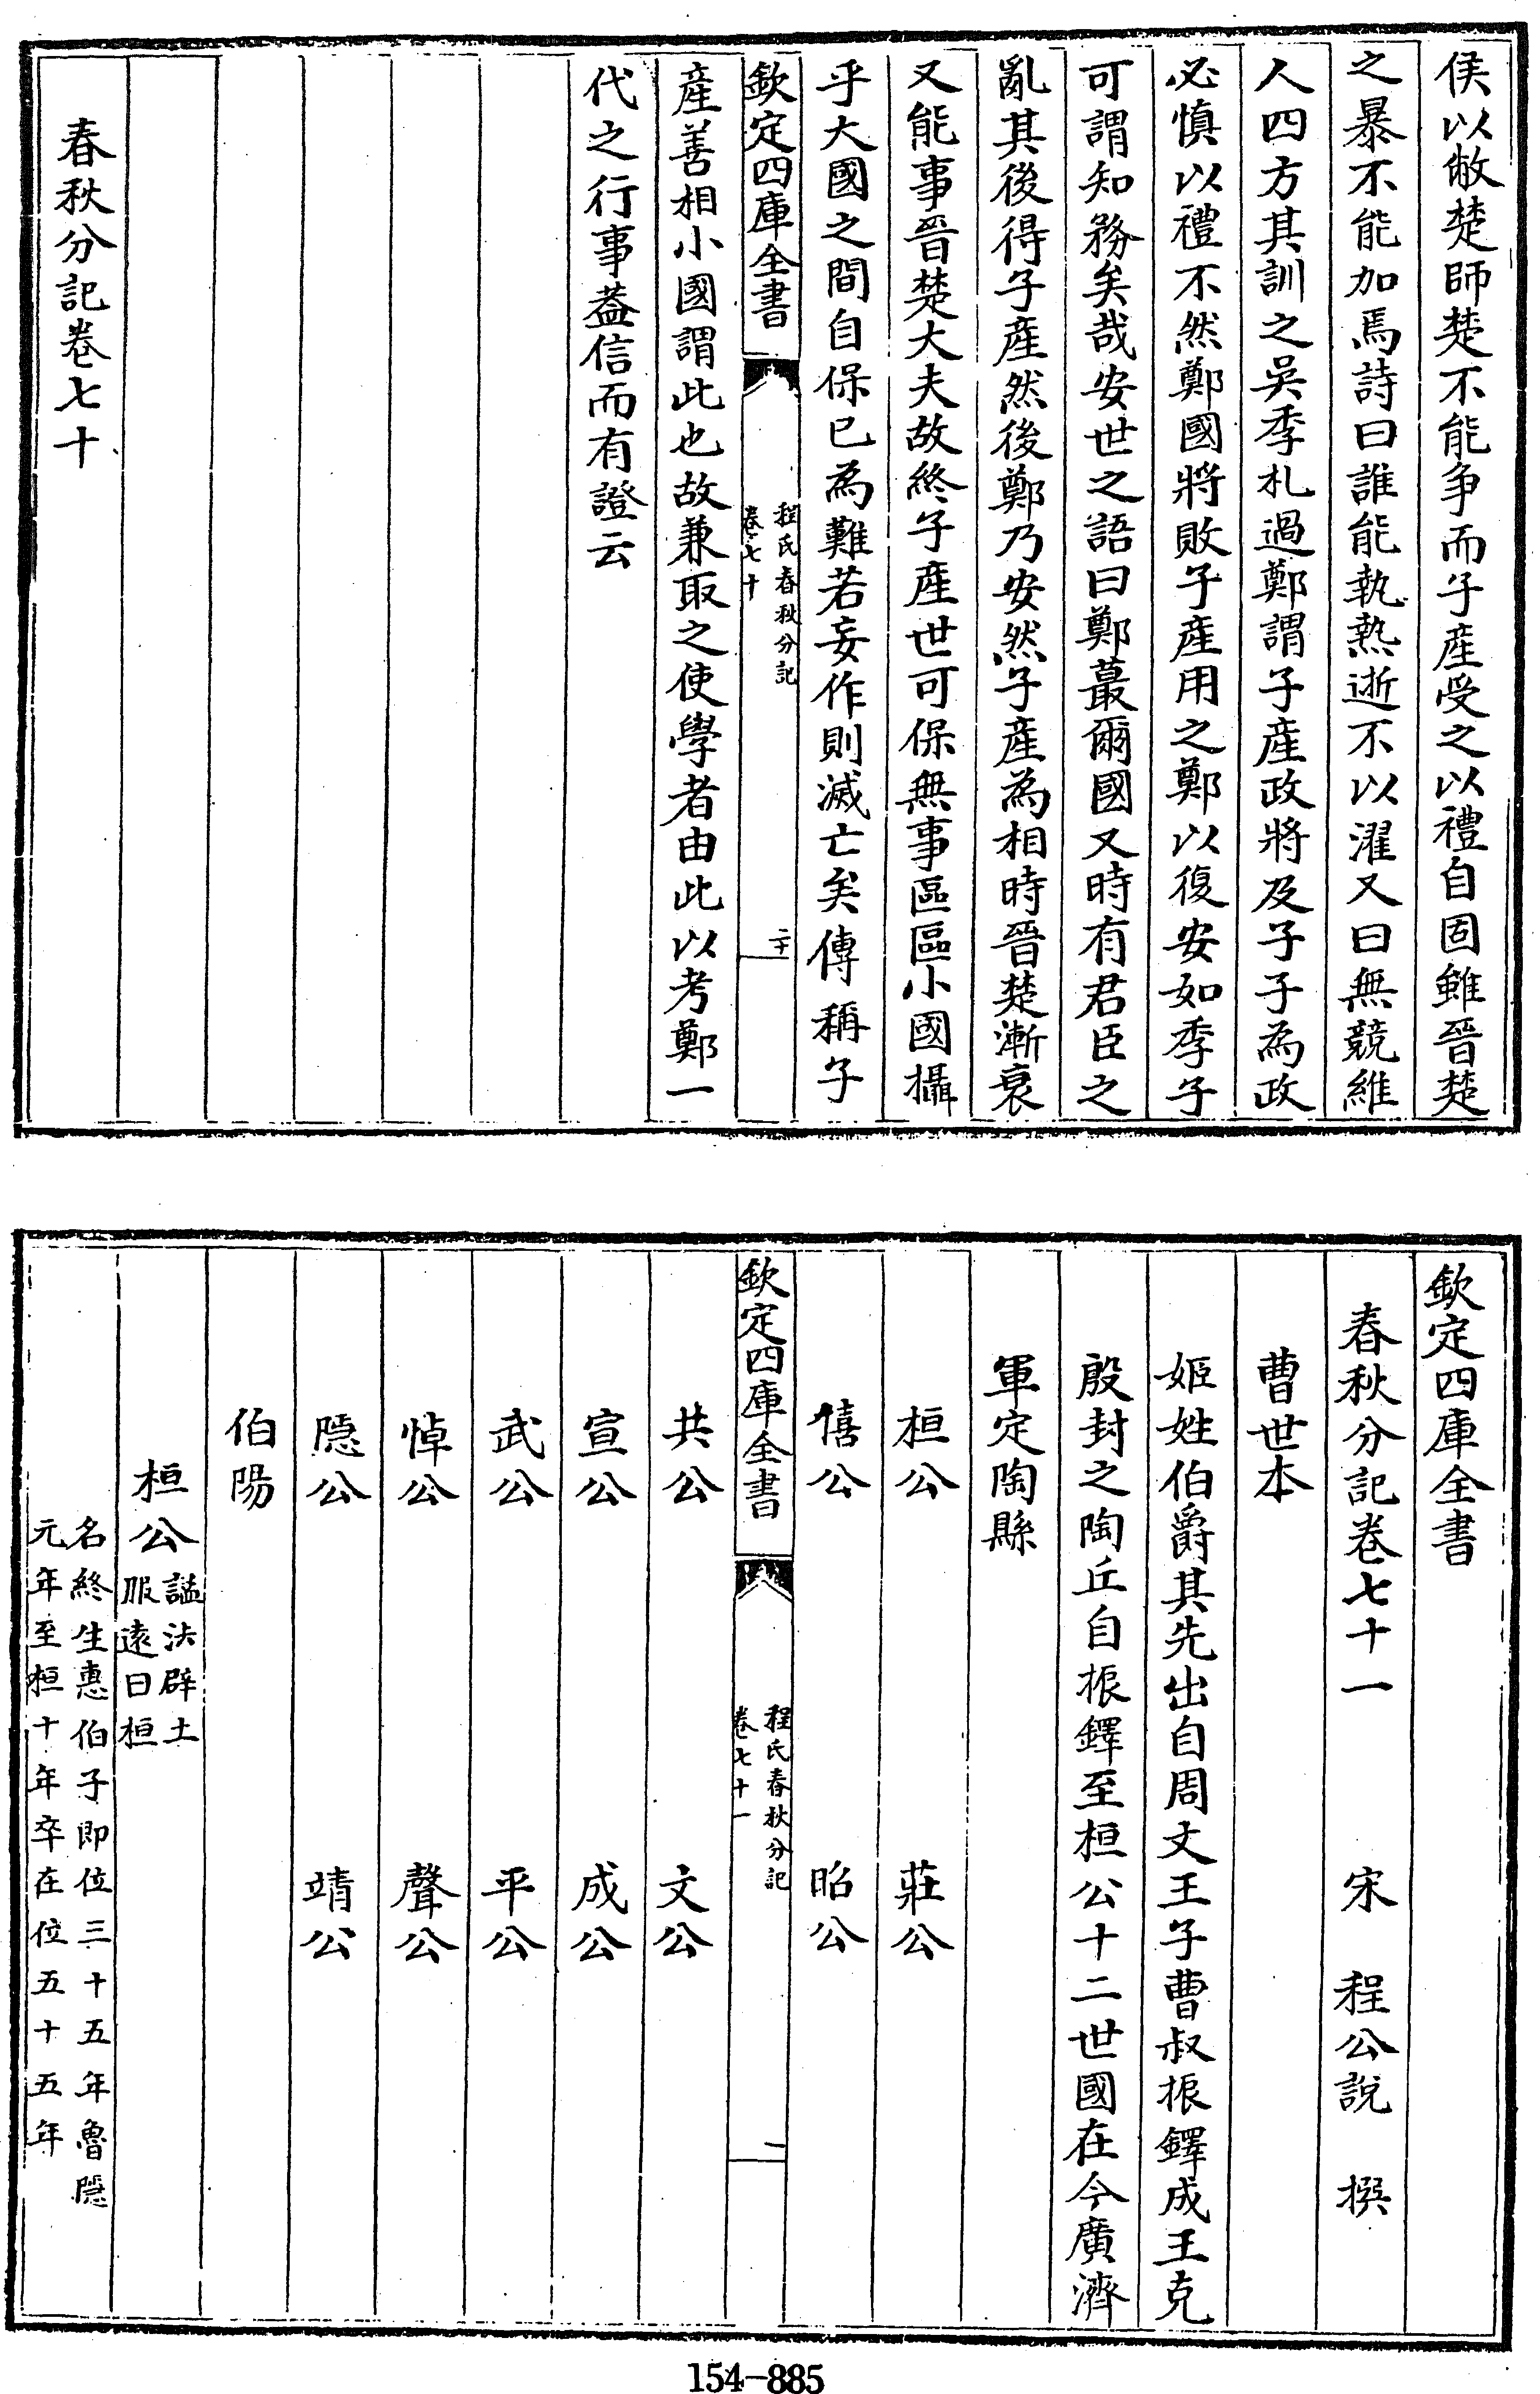 侯以敝楚師楚不能争而子産受之以禮自固雖晉楚
之暴不能加焉詩曰誰能執熱逝不以濯又曰無競維
人四方其訓之吳季札過鄭謂子産政將及子子為政
必慎以禮不然鄭國將敗子産用之鄭以復安如季子
可謂知務矣哉安世之語曰鄭蕞爾國又時有君臣之
亂其後得子産然後鄭乃安然子産為相時晉楚漸衰
又能事晉楚大夫故終子産世可保無事區區小國攝
乎大國之間自保已為難若妄作則滅亡矣傳稱子
欽定四庫全書
程氏春秋分記
卷七十
二十
産善相小國謂此也故兼取之使學者由此以考鄭一
代之行事蓋信而有證云
春秋分記卷七十
欽定四庫全書
春秋分記卷七十一 宋 程公說 撰
曹世本
姬姓伯爵其先出自周文王子曹叔振鐸成王克
殷封之陶丘自振鐸至桓公十二世國在今廣濟
軍定陶縣
桓公 莊公
僖公 昭公
欽定四庫全書
程氏春秋分記
卷七十一
一
共公 文公
宣公 成公
武公 平公
悼公 聲公
隱公 靖公
伯陽
桓公 諡法辟土
服遠曰桓
名終生惠伯子即位三十五年魯隱
元年至桓十年卒在位五十五年
154-885